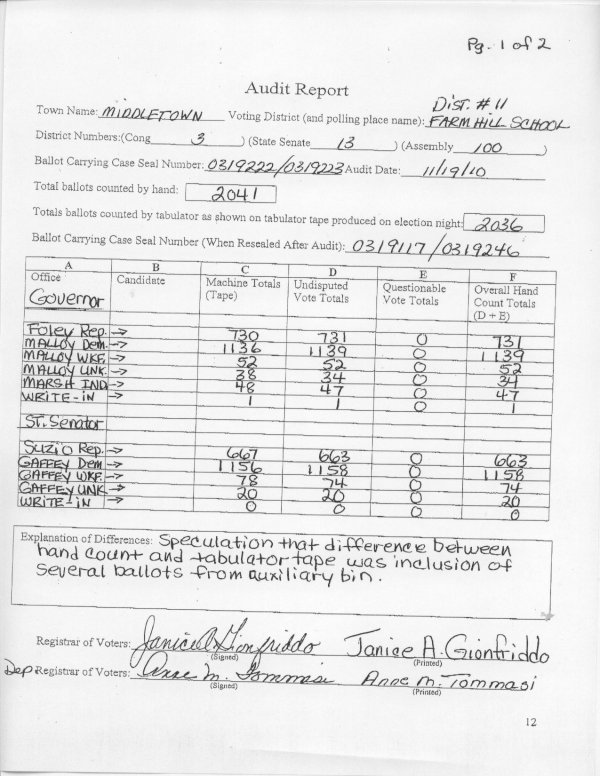 Pg. 1 of 2
Audit Report
Dist. #11
Town Name: MIDDLETOWN Voting District (and polling place name): FARM HILL SCHOOL
District Numbers:(Cong 3 ) (State Senate 13 ) (Assembly 100 )
Ballot Carrying Case Seal Number: 0319222/0319223 Audit Date: 11/19/10
Total ballots counted by hand: 2041
Totals ballots counted by tabulator as shown on tabulator tape produced on election night: 2036
Ballot Carrying Case Seal Number (When Resealed After Audit): 0319117/0319246
A B C D E F
Office Candidate Machine Totals (Tape) Undisputed Vote Totals Questionable Vote Totals Overall Hand Count Totals (D + E)
Governor
Foley Rep. → 730 731 0 731
MALLOY Dem. → 1136 1139 0 1139
MALLOY WKF. → 52 52 0 52
MALLOY UNK. → 38 34 0 34
MARSH IND → 48 47 0 47
WRITE-IN → 1 1 0 1
ST. Senator
SUZIO Rep. → 667 663 0 663
GAFFEY Dem → 1156 1158 0 1158
GAFFEY WKF. → 78 74 0 74
GAFFEY UNK → 20 20 0 20
WRITE-IN → 0 0 0 0
Explanation of Differences: Speculation that difference between
hand count and tabulator tape was inclusion of
several ballots from auxiliary bin.
Registrar of Voters: Janice A. Gionfriddo Janice A. Gionfriddo
(Signed) (Printed)
Dep Registrar of Voters: Anne M. Tommasi Anne M. Tommasi
(Signed) (Printed)
12